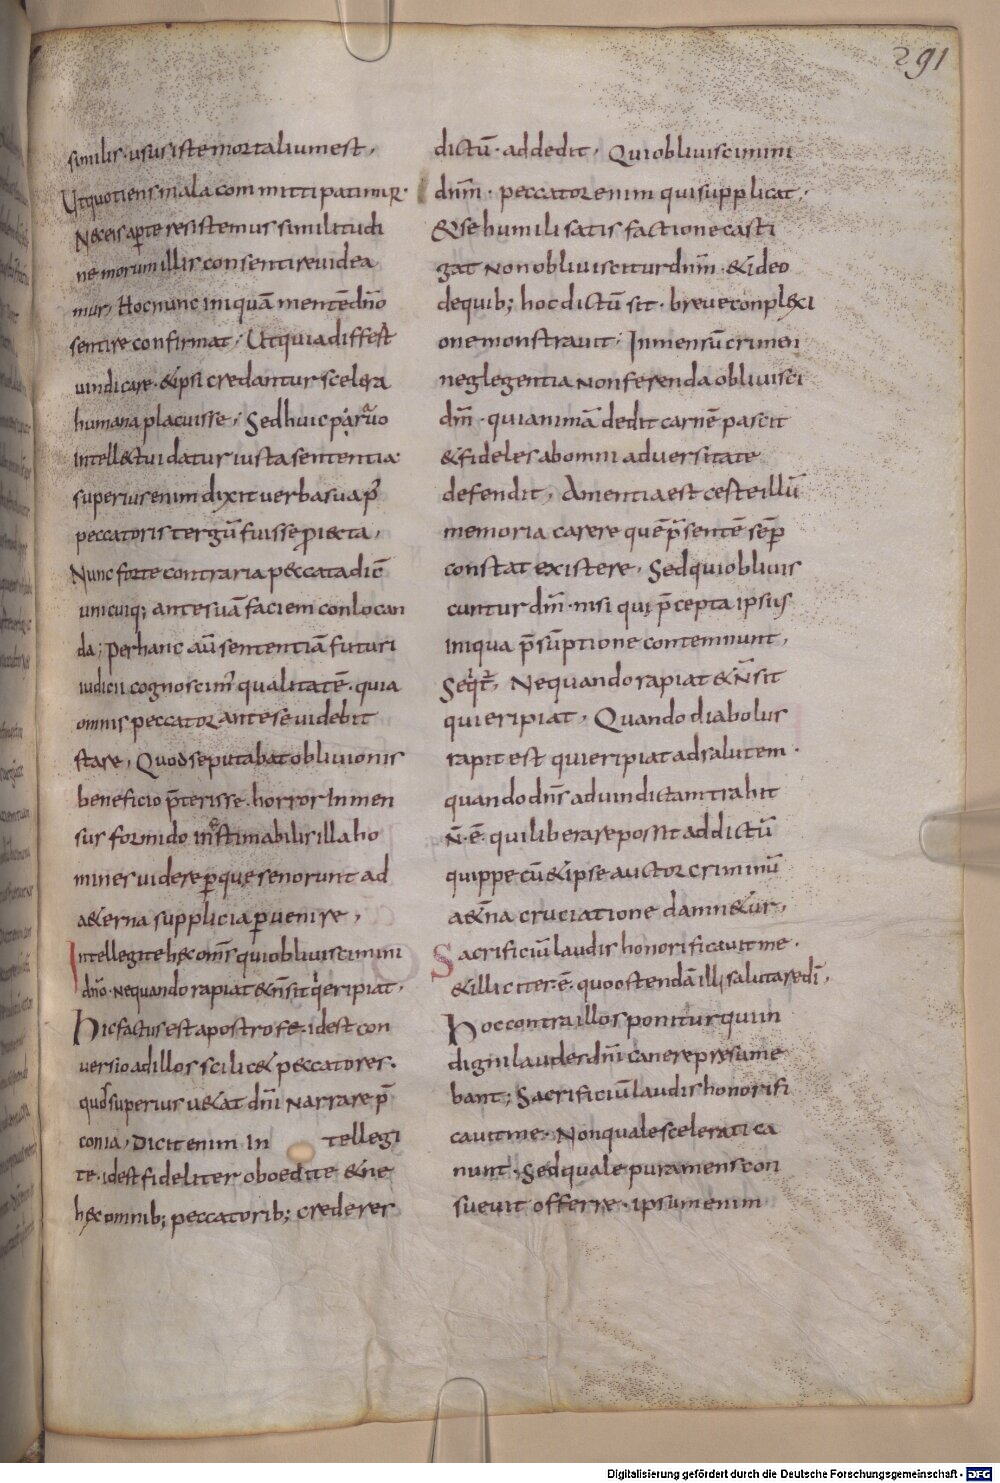 291
similis · usus iste mortalium est,
Ut quotiens mala committi patimur ·
Nec eis aperte resistemus similitudi
ne morum illis consentire videa
mur, Hoc nunc iniquā mentē dn̄o
sentire confirmat; Ut quia differt
vindicare · & ipsi credantur scelera
humana placuisse; Sed huic paruo
intellectui datur iusta sententia·
superius enim dixit verba sua p̄
peccatoris tergū fuisse proiecta,
Nunc forte contraria peccata dic̄
unicuiq; ante suā faciem conlocan
da; per hanc aū sententiā futuri
iudicii cognoscim' qualitatē · quia
omnis peccator ante se videbit
stare, Quod se putabat oblivionis
beneficio p̄terisse · horror inmen
sus formido inęstimabilis illa ho
mines videre per quę se norunt ad
a&erna supplicia pervenire,
Intellegite hęc om̄s qui obliviscimini
dn̄o · nequando rapiat & n̄ sit qui eripiat,
Hic factus est apostrofe · id est con
versio ad illos scilic& peccatores·
quos superius v&at dn̄i narrare p̄
conia, Dicit enim In tellegi
te · id est fideliter oboedite & ne
hęc omnib; peccatorib; crederes
dictū · addedit, Qui obliviscimini
dnm̄ · peccator enim qui supplicat,
& se humili satisfactione casti
gat non obliviscitur dnm̄ · & ideo
de quib; hoc dictū sit · breve conplexi
one monstravit; Inmensū crimen
neglegentia non ferenda oblivisci
dm̄ · qui animā dedit carnē pascit
& fideles ab omni adversitate
defendit, Amentia est ceste illū
memoria carere quē p̄sentē sēp
constat existere, Sed qui oblivis
cuntur dm̄ · nisi qui p̄cepta ipsius
iniqua p̄sūptione contemnunt,
Seqt̄, Nequando rapiat & n̄ sit
qui eripiat, Quando diabolus
rapit est qui eripiat ad salutem ·
quando dn̄s ad vindictam trahit
n̄ · ē · qui liberare possit addictū
quippe cū & ipse auctor criminū
a&na cruciatione damn&ur,
Sacrificiū laudis honorificavit me ·
& illic iter · ē · quo ostendā illi salutare dī,
Hoc contra illos ponitur qui in
digni laudes dn̄i canere presume
bant; Sacrificiū laudis honorifi
cavit me · Non quale scelerati ca
nunt · Sed quale pura mens con
suevit offerre · ipsum enim
Digitalisierung gefördert durch die Deutsche Forschungsgemeinschaft - DFG